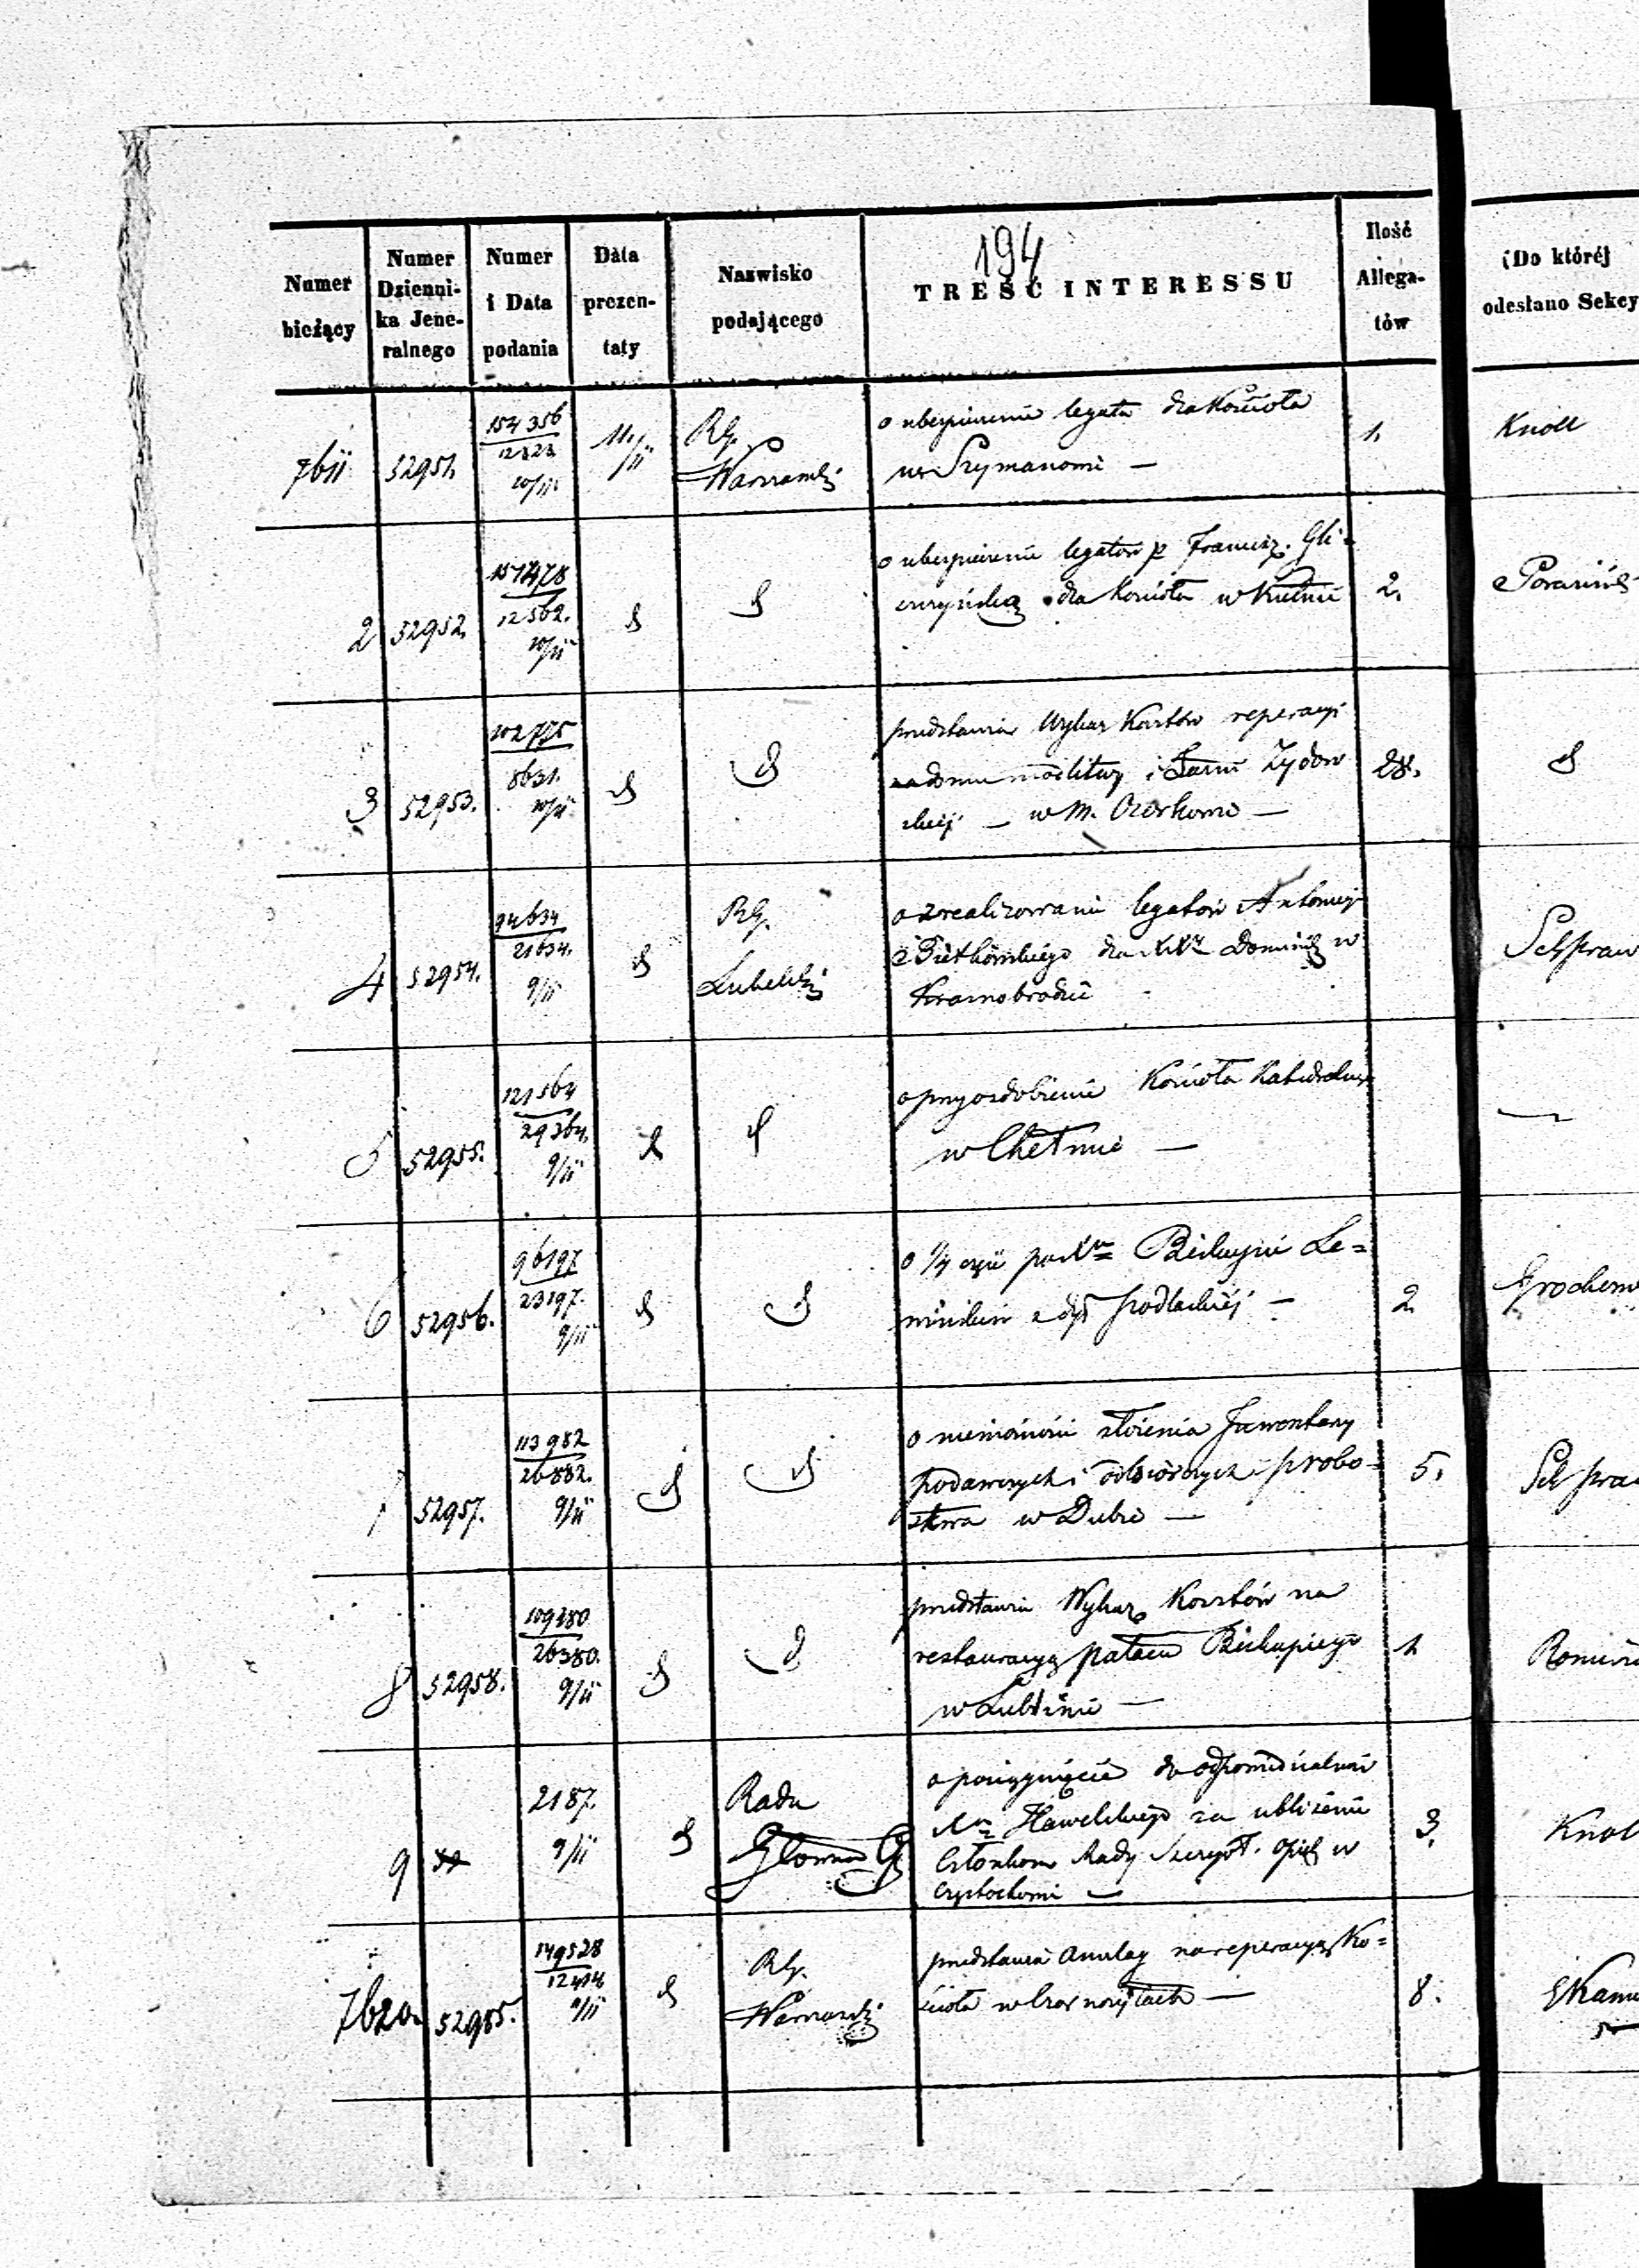 194
Numer bieżący
Numer Dzienni-ka Jene-ralnego
Numer i Data podania
Data prezen-taty
Nazwisko podającego
TREŚĆ INTERESSU
Ilość Allega-tów
Do któréj odesłano Sekcy
7611 52951. 154356 12323 10/11 11/11 RG. Warszawski
o ubezpieczenie legatu dla Kościoła
w Szymanowie —
1. Knoll
2 52952. 12562. 10/11
o ubezpieczenie legatów p Francisz. Gli-
czyńską dla Kościoła w Kutnie
2.
3 52953. 102775 8631. 10/11
przedstawia Wykaz Kosztów reperacyi
domu modlitwy i Łaźni Żydow
skiej — w M. Ozorkowie —
4 52954. 94634 21634. 9/11 RG. Lubelski
o zrealizowanie legatów Antoniego
dla XX Dominik w
Krasnobrodzie
5 52955. 121564 29364. 9/11
o przyozdobienie Kościoła Katedraln
w Chełmie —
6 52956. 96197 23197. 9/11
Biskupie Se=
z dyi Podlaskiéj —
2
7 52957. 113982 26882. 9/11
o niemożności złożenia Inwentarzy
podawczych i odbiorczych probo-
stwa w Dubie —
5.
8 52958. 109380 26380. 9/11
przedstawia Wykaz Kosztów na
restauracyą pałacu Biskupiego
w Lublinie —
1
9 2187. 9/11 Rada Główna
o pociągnięcie do odpowiedzialnoś
Hawelskiego za ubliżenie
Członkom Rady Szczegół. Opiek w
Częstochowie —
3.
7620. 52985. 149528 12414 9/11 RG. Warszawski
przedstawia Anszlag na reperacyą Ko=
ścioła w —
8.